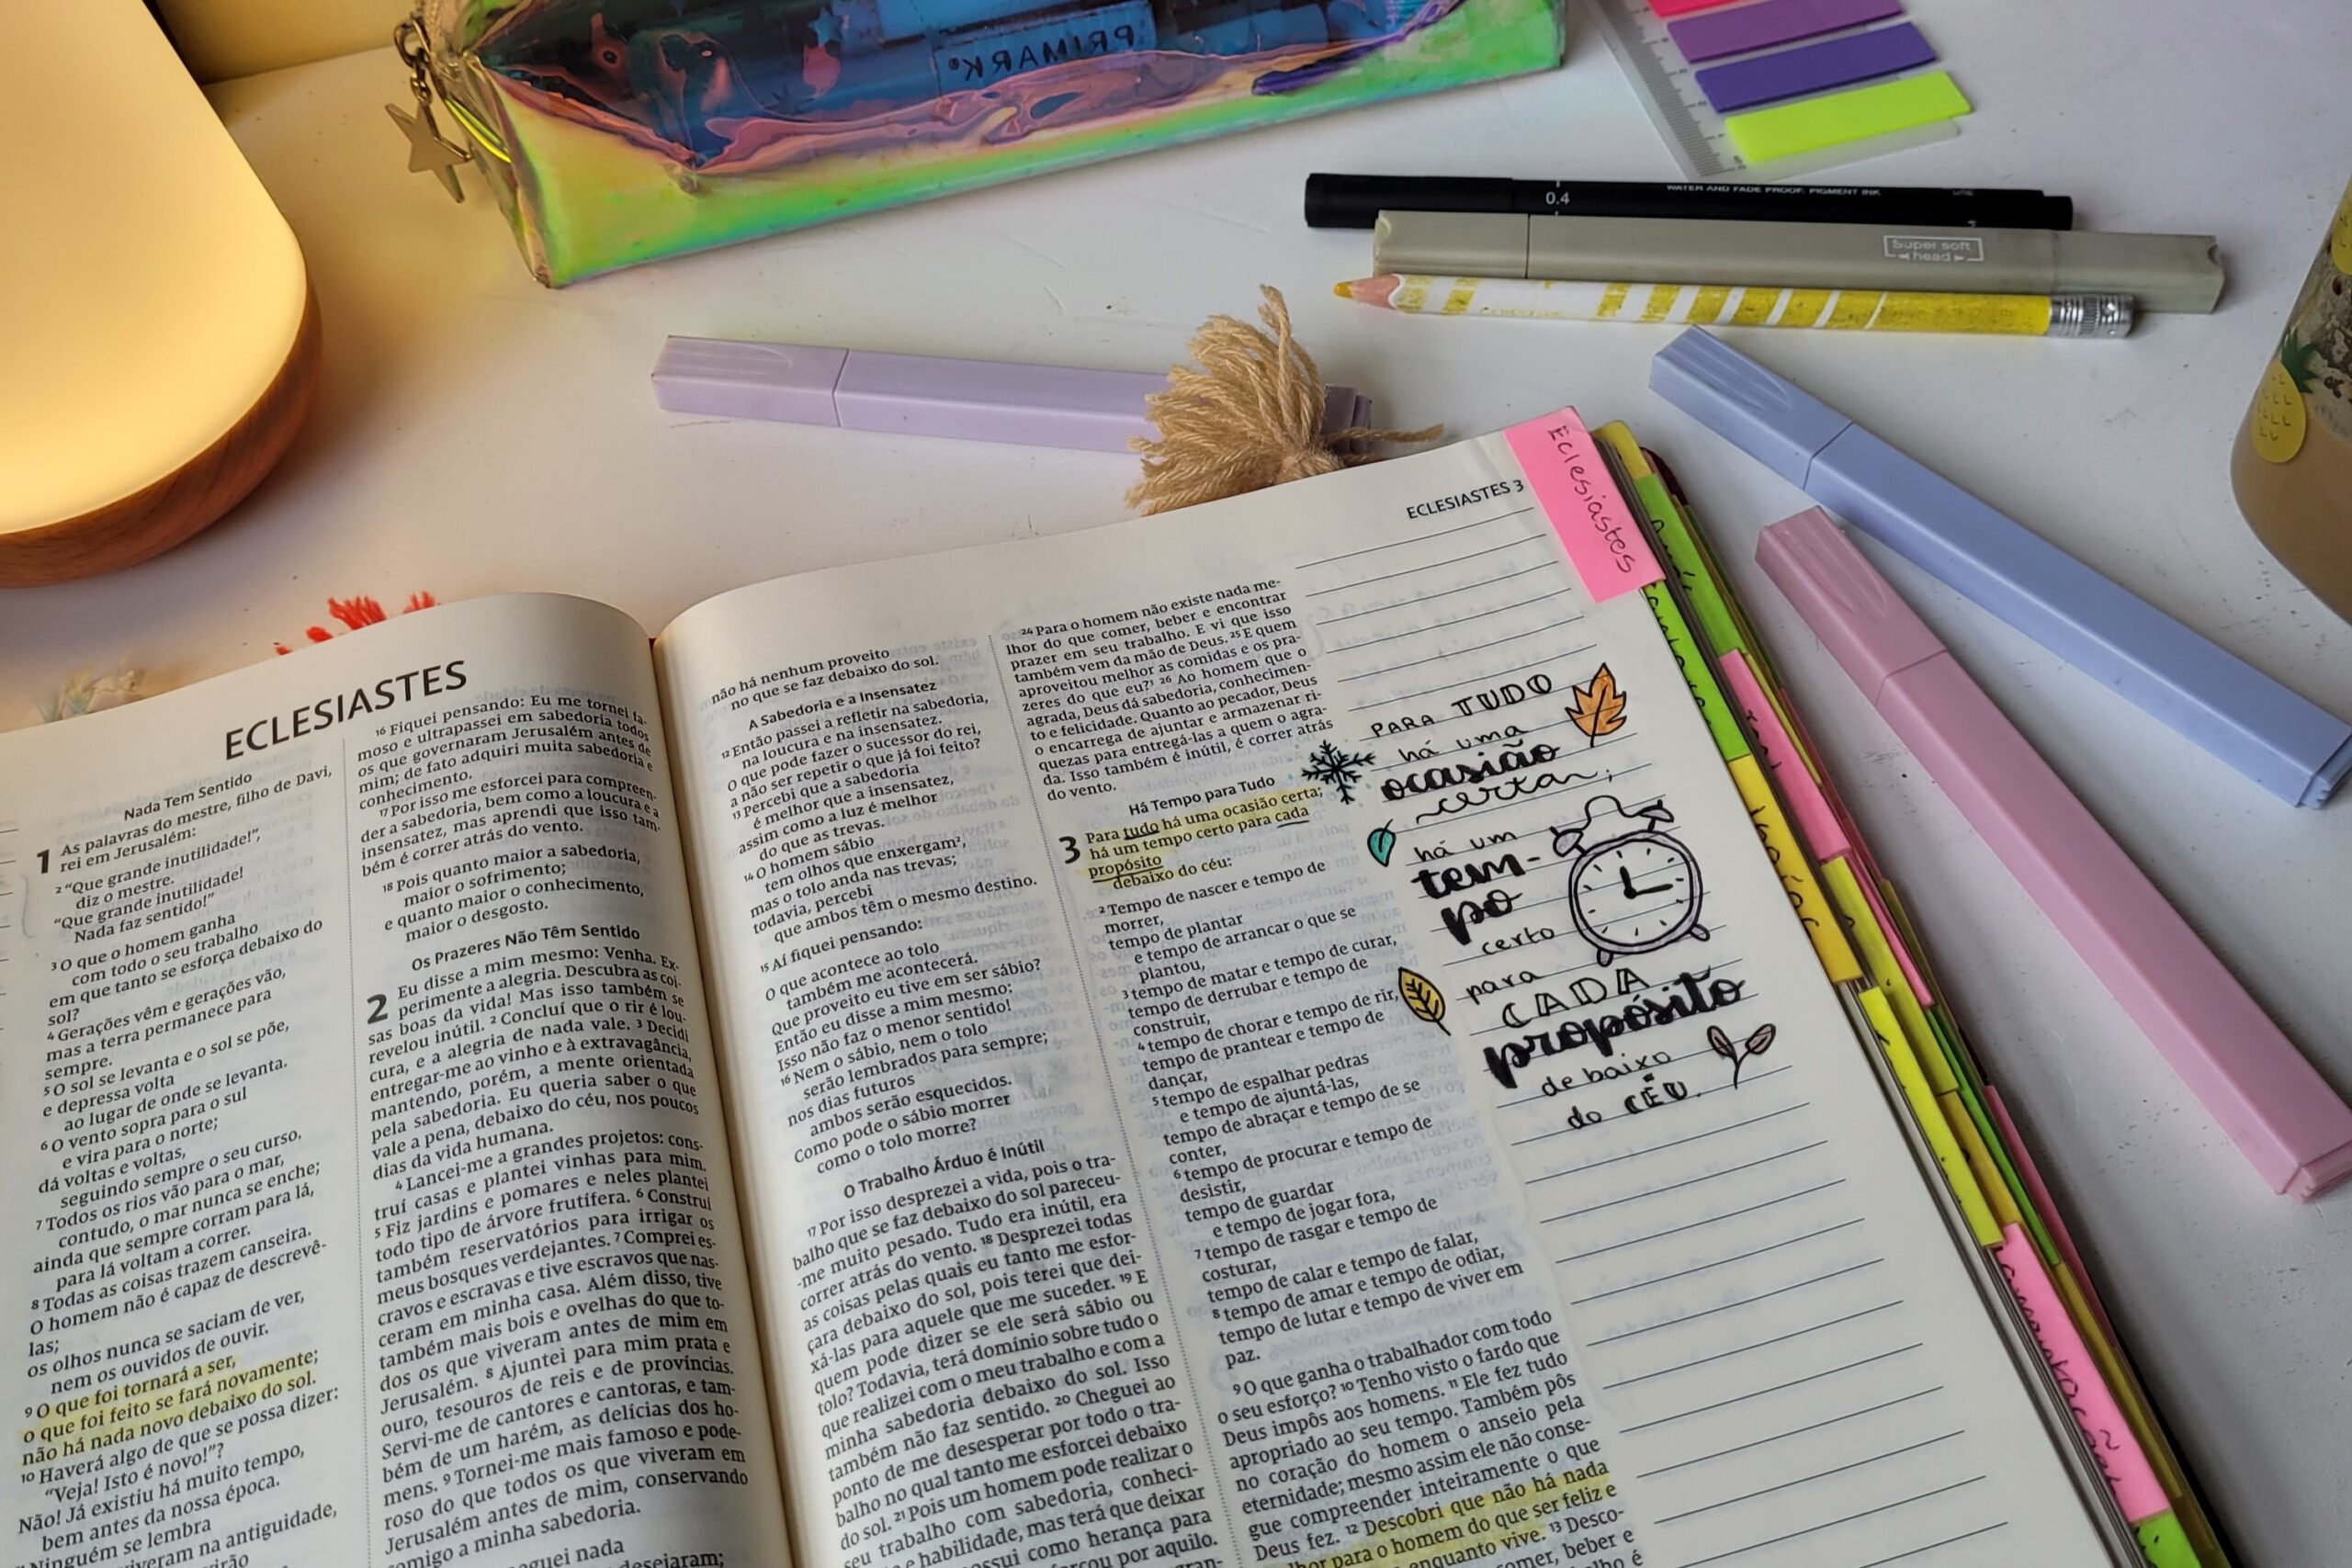 PRIMARK®
0.4
WATER AND FADE PROOF. PIGMENT INK
Super soft
head
Eclesiastes
ECLESIASTES 3
ECLESIASTES
Nada Tem Sentido
1 As palavras do mestre, filho de Davi,
rei em Jerusalém:
2 “Que grande inutilidade!”,
diz o mestre.
“Que grande inutilidade!
Nada faz sentido!”
3 O que o homem ganha
com todo o seu trabalho
em que tanto se esforça debaixo do
sol?
4 Gerações vêm e gerações vão,
mas a terra permanece para
sempre.
5 O sol se levanta e o sol se põe,
e depressa volta
ao lugar de onde se levanta.
6 O vento sopra para o sul
e vira para o norte;
dá voltas e voltas,
seguindo sempre o seu curso.
7 Todos os rios vão para o mar,
contudo, o mar nunca se enche;
ainda que sempre corram para lá,
para lá voltam a correr.
8 Todas as coisas trazem canseira.
O homem não é capaz de descrevê-
las;
os olhos nunca se saciam de ver,
nem os ouvidos de ouvir.
9 O que foi tornará a ser,
o que foi feito se fará novamente;
não há nada novo debaixo do sol.
10 Haverá algo de que se possa dizer:
“Veja! Isto é novo!”?
Não! Já existiu há muito tempo,
bem antes da nossa época.
Ninguém se lembra
viveram na antiguidade,
16 Fiquei pensando: Eu me tornei fa-
moso e ultrapassei em sabedoria todos
os que governaram Jerusalém antes de
mim; de fato adquiri muita sabedoria e
conhecimento.
17 Por isso me esforcei para compreen-
der a sabedoria, bem como a loucura e a
insensatez, mas aprendi que isso tam-
bém é correr atrás do vento.
18 Pois quanto maior a sabedoria,
maior o sofrimento;
e quanto maior o conhecimento,
maior o desgosto.
Os Prazeres Não Têm Sentido
2 Eu disse a mim mesmo: Venha. Ex-
perimente a alegria. Descubra as coi-
sas boas da vida! Mas isso também se
revelou inútil. 2 Concluí que o rir é lou-
cura, e a alegria de nada vale. 3 Decidi
entregar-me ao vinho e à extravagância,
mantendo, porém, a mente orientada
pela sabedoria. Eu queria saber o que
vale a pena, debaixo do céu, nos poucos
dias da vida humana.
4 Lancei-me a grandes projetos: cons-
truí casas e plantei vinhas para mim.
5 Fiz jardins e pomares e neles plantei
todo tipo de árvore frutífera. 6 Construí
também reservatórios para irrigar os
meus bosques verdejantes. 7 Comprei es-
cravos e escravas e tive escravos que nas-
ceram em minha casa. Além disso, tive
também mais bois e ovelhas do que to-
dos os que viveram antes de mim em
Jerusalém. 8 Ajuntei para mim prata e
ouro, tesouros de reis e de províncias.
Servi-me de cantores e cantoras, e tam-
bém de um harém, as delícias dos ho-
mens. 9 Tornei-me mais famoso e pode-
roso do que todos os que viveram em
Jerusalém antes de mim, conservando
comigo a minha sabedoria.
nada
desejaram;
não há nenhum proveito
no que se faz debaixo do sol.
A Sabedoria e a Insensatez
12 Então passei a refletir na sabedoria,
na loucura e na insensatez.
O que pode fazer o sucessor do rei,
a não ser repetir o que já foi feito?
13 Percebi que a sabedoria
é melhor que a insensatez,
assim como a luz é melhor
do que as trevas.
14 O homem sábio
tem olhos que enxergam²,
mas o tolo anda nas trevas;
todavia, percebi
que ambos têm o mesmo destino.
15 Aí fiquei pensando:
O que acontece ao tolo
também me acontecerá.
Que proveito eu tive em ser sábio?
Então eu disse a mim mesmo:
Isso não faz o menor sentido!
16 Nem o sábio, nem o tolo
serão lembrados para sempre;
nos dias futuros
ambos serão esquecidos.
Como pode o sábio morrer
como o tolo morre?
O Trabalho Árduo é Inútil
17 Por isso desprezei a vida, pois o tra-
balho que se faz debaixo do sol pareceu-
-me muito pesado. Tudo era inútil, era
correr atrás do vento. 18 Desprezei todas
as coisas pelas quais eu tanto me esfor-
çara debaixo do sol, pois terei que dei-
xá-las para aquele que me suceder. 19 E
quem pode dizer se ele será sábio ou
tolo? Todavia, terá domínio sobre tudo o
que realizei com o meu trabalho e com a
minha sabedoria debaixo do sol. Isso
também não faz sentido. 20 Cheguei ao
ponto de me desesperar por todo o tra-
balho no qual tanto me esforcei debaixo
do sol. 21 Pois um homem pode realizar o
seu trabalho com sabedoria, conheci-
e habilidade, mas terá que deixar
possui como herança para
por aquilo.
24 Para o homem não existe nada me-
lhor do que comer, beber e encontrar
prazer em seu trabalho. E vi que isso
também vem da mão de Deus. 25 E quem
aproveitou melhor as comidas e os pra-
zeres do que eu? 26 Ao homem que o
agrada, Deus dá sabedoria, conhecimen-
to e felicidade. Quanto ao pecador, Deus
o encarrega de ajuntar e armazenar ri-
quezas para entregá-las a quem o agra-
da. Isso também é inútil, é correr atrás
do vento.
Há Tempo para Tudo
3 Para tudo há uma ocasião certa;
há um tempo certo para cada
propósito
debaixo do céu:
2 Tempo de nascer e tempo de
morrer,
tempo de plantar
e tempo de arrancar o que se
plantou,
3 tempo de matar e tempo de curar,
tempo de derrubar e tempo de
construir,
4 tempo de chorar e tempo de rir,
tempo de prantear e tempo de
dançar,
5 tempo de espalhar pedras
e tempo de ajuntá-las,
tempo de abraçar e tempo de se
conter,
6 tempo de procurar e tempo de
desistir,
tempo de guardar
e tempo de jogar fora,
7 tempo de rasgar e tempo de
costurar,
tempo de calar e tempo de falar,
8 tempo de amar e tempo de odiar,
tempo de lutar e tempo de viver em
paz.
9 O que ganha o trabalhador com todo
o seu esforço? 10 Tenho visto o fardo que
Deus impôs aos homens. 11 Ele fez tudo
apropriado ao seu tempo. Também pôs
no coração do homem o anseio pela
eternidade; mesmo assim ele não conse-
gue compreender inteiramente o que
Deus fez. 12 Descobri que não há nada
para o homem do que ser feliz e
enquanto vive. 13 Desco-
comer, beber e
PARA TUDO
há uma
ocasião
certa;
há um
tem-
po
certo
para
CADA
propósito
debaixo
do CÉU.